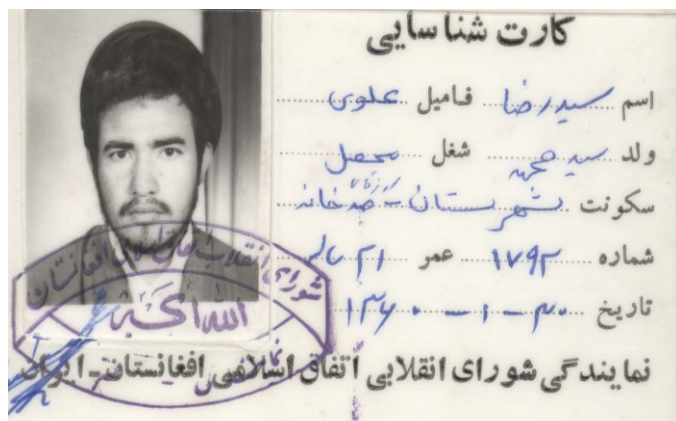 کارت شناسایی
اسم سید رضا فامیل علوی
ولد سید محمد شغل محصل
سکونت شهرستان - صدخانه
شماره ۱۷۹۲ عمر ۲۱ ساله
تاریخ ۳۰ - ۱ - ۱۳۶۰
نمایندگی شورای انقلابی اتفاق اسلامی افغانستان - ایران
شورای انقلابی اتفاق اسلامی افغانستان
الله اکبر